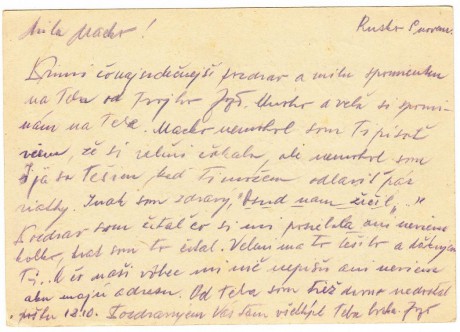 Milá Macko!
Rusko
Prímí čo najsrdečnejší pozdrav a milú spomienku
na Teba od Tvojho Jozo. Macko veľa si spomí-
nám na Teba. Macko nemohol som Ti písať
viem, že si veľmi čakala, ale nemohol som
I já sa Teším keď Ti môžem odoslať pár
riadky. Inak som zdravý, "Osud nám žičil"
Pozdrav som čítal čo si mi poslala ani neviem
koľko krat som to čítal. Veľmi ma to teší
Ti. A čo naši vôbec mi nič nepíšu ani neviem
aku majú adresu. Od Teba som tiež dávno nedostal
poštu 12.10. Pozdravujem Vás tam všetkých Teba